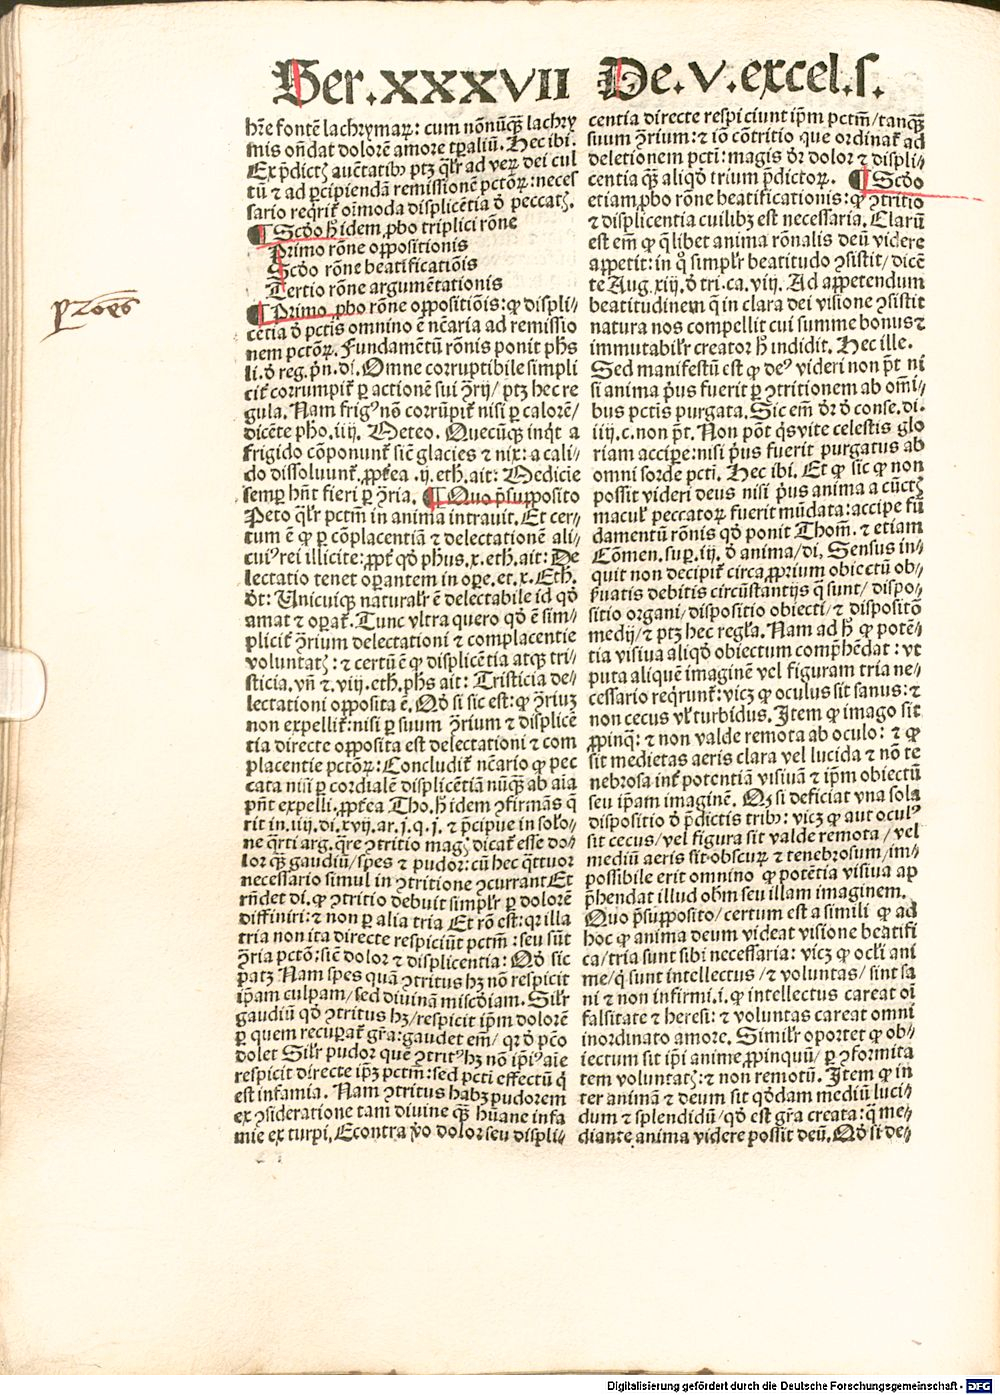 Ser.XXXVII De.V.excel.s.
hr̄e fontē lachrymaꝝ: cum nōnūqꝫ lachry
mis oñdat dolorē amore tp̄aliū. Hec ibi.
Ex p̄dictꝭ aucťatibꝰ ptꝫ qľr ad verū dei cul
tū ⁊ ad ꝑcipiendā remissionē pctōꝝ: neces
sario reqrit̄ oīmoda displicētia ď peccatꝭ.
¶ Scďo hͦ idem ꝓbo triplici rōne
Primo rōne oppositionis
Scďo rōne beatificatiōis
Tertio rōne argumētationis
¶ Primo ꝓbo rōne oppositiōis: ꝙ displi⸗
cētia ď pctīs omnino ē nc̄aria ad remissio
nem pctōꝝ. Fundamētū rōnis ponit phs
li. ď reg. pn̄. dī. Omne corruptibile simpli
cit̄ corrumpit̄ ꝑ actionē sui ꝯ̄rij/ ptꝫ hec re
gula. Nam frigꝰ nō corrūpit̄ nisi ꝑ calorē/
dicēte pho. iiij. Meteo. Quecūqꝫ inqt a
frigido cōponunt̄ sic̄ glacies ⁊ nix: a cali⸗
do dissoluunt̄. ꝓpt̄ea .ij. eth. ait: Medicie
semꝑ hn̄t fieri ꝑ ꝯ̄ria. ¶ Quo p̄supposito
Peto qľr pctm̄ in anima intrauit. Et cer⸗
tum ē ꝙ ꝑ cōplacentiā ⁊ delectationē ali⸗
cuiꝰ rei illicite: ꝓpt̄ qď phus. x. eth. ait: De
lectatio tenet oꝑantem in oꝑe. et. x. Eth.
ďt: Unicuiqꝫ naturaľr ē delectabile id qď
amat ⁊ oꝑat̄. Tunc vltra quero qď ē sim⸗
plicit̄ ꝯ̄rium delectationi ⁊ complacentie
voluntatꝭ: ⁊ certū ē ꝙ displicētia atqꝫ tri⸗
sticia. vn̄ ⁊. viij. eth. phs ait: Tristicia de⸗
lectationi opposita ē. Qď si sic est: ꝙ ꝯ̄riuꝫ
non expellit̄: nisi ꝑ suum ꝯ̄rium ⁊ displicē
tia directe opposita est delectationi ⁊ com
placentie pctōꝝ: Concludit̄ nc̄ario ꝙ pec
cata nisi ꝑ cordialē displicētiā nūqꝫ ab aīa
pn̄t expelli. ꝓpt̄ea Tho. hͦ idem ꝯfirmās q̄
rit in. iiij. di. xvij. ar. j. q. j. ⁊ p̄cipue in solo⸗
ne q̄rti arg. q̄re ꝯtritio magꝭ dicat̄ esse do⸗
lor qꝫ gaudiū/ spes ⁊ pudor: cū hec q̄ttuor
necessario simul in ꝯtritione ꝯcurrant Et
rn̄det di. ꝙ ꝯtritio debuit simpľr ꝑ dolorē
diffiniri: ⁊ non ꝑ alia tria Et rō est: qr illa
tria non ita directe respiciūt pctm̄: seu sūt
ꝯ̄ria pctō: sic̄ dolor ⁊ displicentia: Qď sic
p̄atꝫ Nam spes quā ꝯtritus hꝫ nō respicit
ip̄am culpam/ sed diuinā miscďiam. Siľr
gaudiū qď ꝯtritus hꝫ/ respicit ip̄m dolorē
ꝑ quem recuꝑat̄ gr̄a: gaudet em̄/ qr ď pc̄o
dolet Siľr pudor quē ꝯtritꝰ hꝫ nō ip̄iꝰ aīe
respicit directe ip̄ꝫ pctm̄: sed pcti effectū q̇
est infamia. Nam ꝯtritus habꝫ pudorem
ex ꝯsideratione tam diuine qꝫ hūane infa
mie ex turpi. Econtra v̄o dolor seu displi⸗
centia directe respiciunt ip̄m pctm̄/ tanqꝫ
suum ꝯ̄rium: ⁊ iō cōtritio que ordinat̄ ad
deletionem pcti: magis ďr dolor ⁊ displi⸗
centia qꝫ aliqď trium p̄dictoꝝ. ¶ Scďo
etiam ꝓbo rōne beatificationis: ꝙ ꝯtritio
⁊ displicentia cuilibꝫ est necessaria. Clarū
est em̄ ꝙ q̄libet anima rōnalis deū videre
appetit: in qͦ simpľr beatitudo ꝯsistit/ dicē
te Aug. xij. ď tri. ca. vij. Ad appetendum
beatitudinem q̄ in clara dei visione ꝯsistit
natura nos compellit cui summe bonus ⁊
immutabiľr creator hͦ indidit. Hec ille.
Sed manifestū est ꝙ deꝰ videri non p̄t ni
si anima pꝰus fuerit ꝑ ꝯtritionem ab om̄i⸗
bus pctis purgata. Sic em̄ ďr ď conse. di.
iiij. c. non p̄t. Non pōt q̇svite celestis glo
riam accipere: nisi pꝰus fuerit purgatus ab
omni sorde pcti. Hec ibi. Et ꝙ sic ꝙ non
possit videri deus nisi pꝰus anima a cūctꝭ
maculꝭ peccatoꝝ fuerit mūdata: accipe fū
damentū rōnis qď ponit Thom. ⁊ etiam
Cōmen. suꝑ. iij. ď anima/ di. Sensus in⸗
quit non decipit̄ circa ꝓprium obiectū ob⸗
p̄uatis debitis circūstantijs q̄ sunt/ dispo⸗
sitio organi/ dispositio obiecti/ ⁊ dispositō
medij/ ⁊ ptꝫ hec regľa. Nam ad hͦ ꝙ potē⸗
tia visiua aliqď obiectum comp̄hēdat: vt
puta aliquē imaginē vel figuram tria ne⸗
cessario req̇runt̄: vicꝫ ꝙ oculus sit sanus: ⁊
non cecus vľ turbidus. Item ꝙ imago sit
ꝓpinq̄: ⁊ non valde remota ab oculo: ⁊ ꝙ
sit medietas aeris clara vel lucida ⁊ nō te
nebrosa int̄ potentiā visiuā ⁊ ip̄m obiectū
seu ip̄am imaginē. Qꝫ si deficiat vna sola
dispositio ď p̄dictis tribꝰ: vicꝫ ꝙ aut oculꝰ
sit cecus/ vel figura sit valde remota/ vel
mediū aeris sit obscuꝝ ⁊ tenebrosum/ im⸗
possibile erit omnino ꝙ potētia visiua ap
p̄hendat illud obm̄ seu illam imaginem.
Quo p̄supposito/ certum est a simili ꝙ ad
hoc ꝙ anima deum videat visione beatifi
ca/ tria sunt sibi necessaria: vicꝫ ꝙ ocľi ani
me/ q̇ sunt intellectus/ ⁊ voluntas/ sint sa
ni ⁊ non infirmi. i. ꝙ intellectus careat oī
falsitate ⁊ heresi: ⁊ voluntas careat omni
inordinato amore. Similr oportet ꝙ ob⸗
iectum sit ip̄i anime ꝓpinquū/ ꝑ ꝯformita
tem voluntatꝭ: ⁊ non remotū. Item ꝙ in
ter animā ⁊ deum sit qďdam mediū luci⸗
dum ⁊ splendidū/ qď est gr̄a creata: q̄ me⸗
diante anima videre possit deū. Qď si de⸗
Digitalisierung gefördert durch die Deutsche Forschungsgemeinschaft - DFG